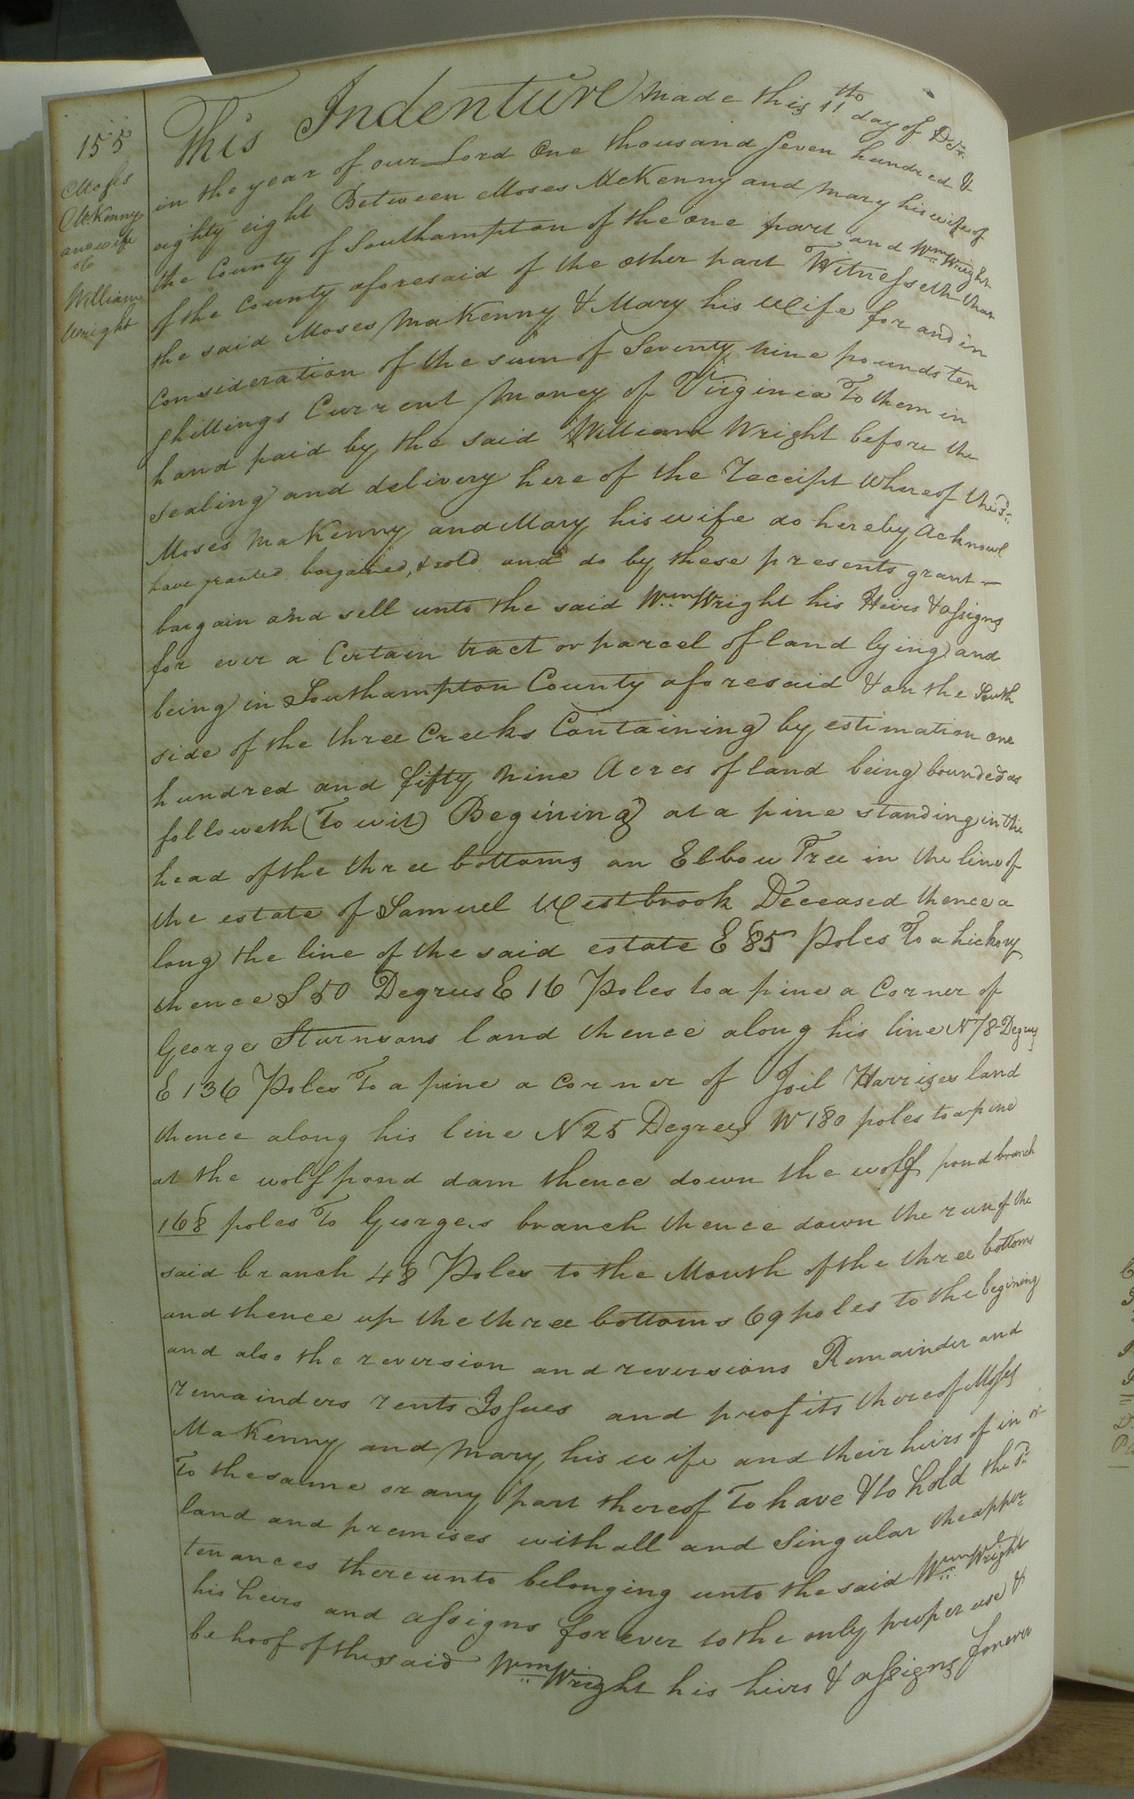 155
Moses
McKenny
and wife
to
William
Wright
This Indenture Made this 11th day of Decr.
in the year of our Lord One thousand Seven hundred &
eighty eight Between Moses McKenny and Mary his wife of
the County of Southampton of the one part and Wm. Wright
of the County aforesaid of the other part Witnesseth that
the said Moses MaKenny & Mary his Wife for and in
Consideration of the sum of Seventy nine pounds ten
shillings Current Money of Virginia To them in
hand paid by the said William Wright before the
sealing and delivery here of the Receipt Whereof the sd.
Moses MaKenny and Mary his wife do hereby Acknowl
have granted bargained, & sold and do by these presents grant
bargain and sell unto the said Wm. Wright his Heirs & assigns
for ever a Certain tract or parcel of land lying and
being in Southampton County aforesaid & on the South
side of the three Creeks Containing by estimation one
hundred and fifty nine Acres of land being bounded as
followeth (To wit) Begining at a pine standing in the
head of the three bottoms an Elbow Tree in the line of
the estate of Samuel Westbrook Deceased thence a
long the line of the said estate E 85 Poles To a hickory
thence S 50 Degrus E 16 Poles to a pine a Corner of
George Sturnsons land thence along his line N 78 Degrees
E 136 Poles To a pine a corner of Joil Harrises land
thence along his line N 25 Degrees W 180 poles to a pine
at the wolf pond dam thence down the wolf pond branch
168 poles To Georges branch thence down the run of the
said branch 48 Poles to the Mouth of the three bottoms
and thence up the three bottoms 69 poles to the begining
and also the reversion and reversions Remainder and
remainders rents Issues and profits thereof Moses
MaKenny and Mary his wife and their heirs of in or
To the same or any part thereof To have & to hold the sd.
land and premises with all and Singular the apper
tenances thereunto belonging unto the said Wm. Wright
his heirs and assigns for ever to the only proper use &
behoof of the said Wm. Wright his heirs & assigns forever